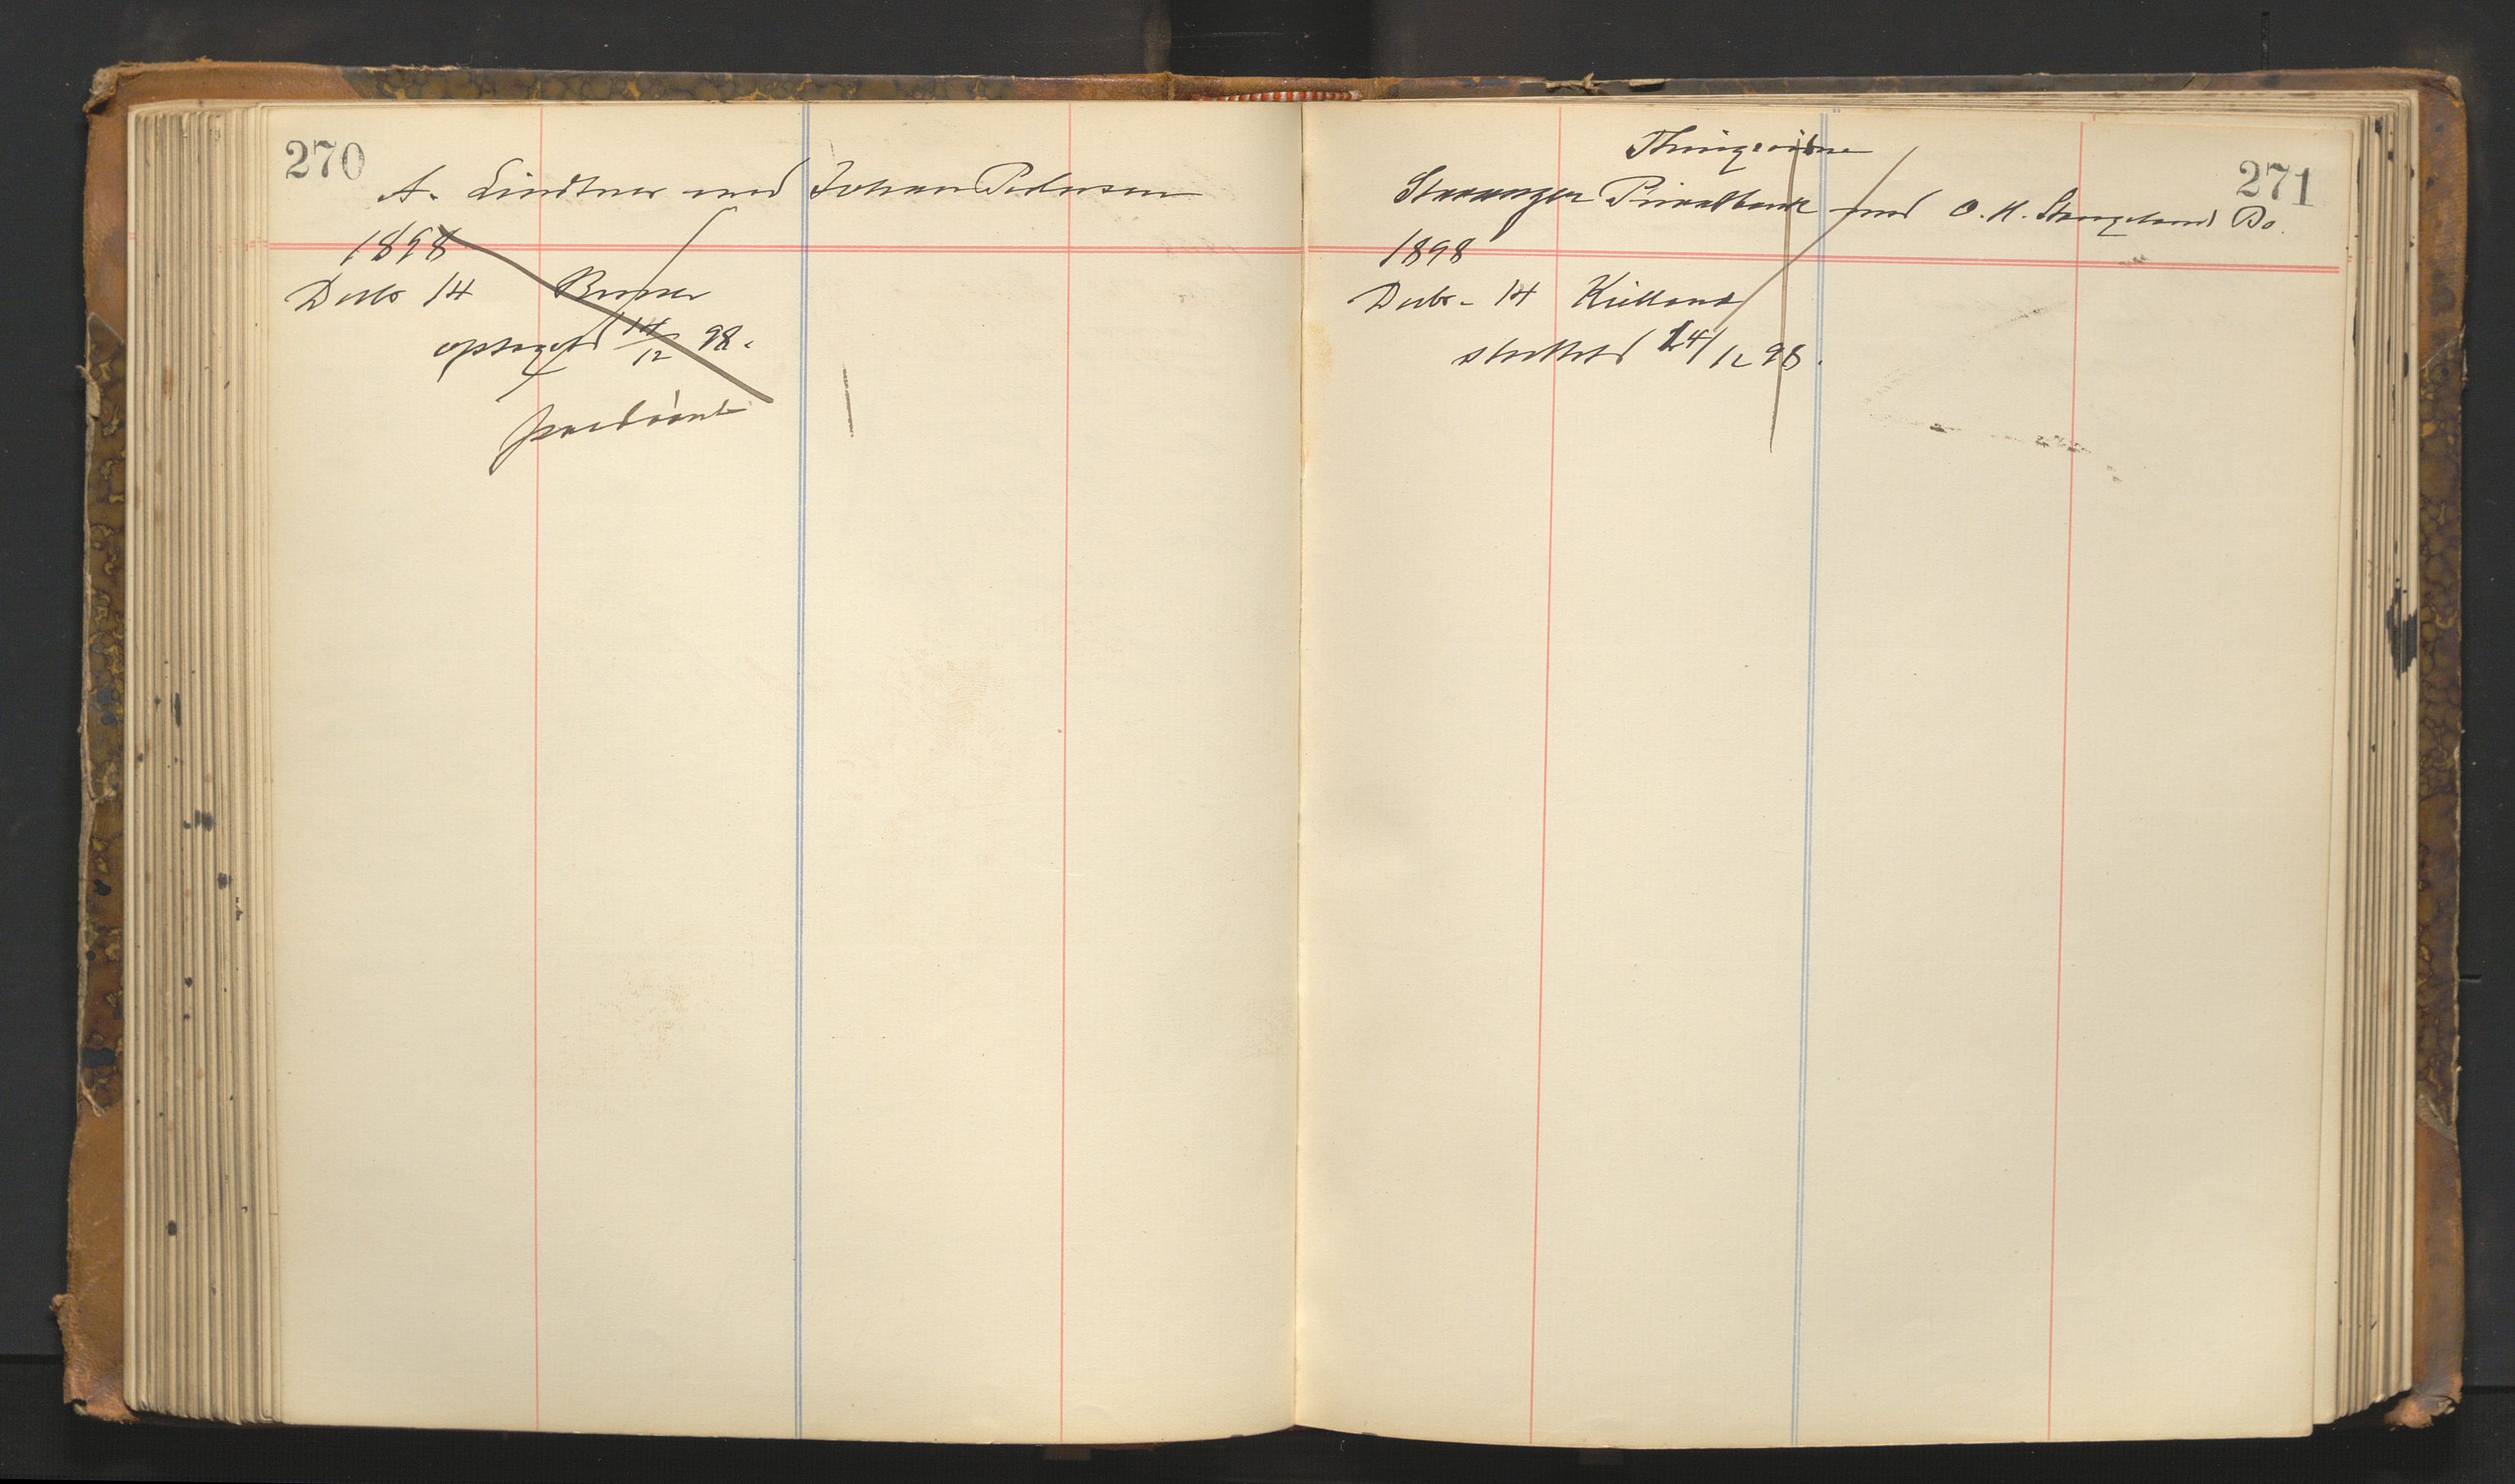 270
A. Lindtner mod Johan Pedersen
1898
Decbr 14 Berner
optaget 14/12 98.
paadømt
271
Thingsvidne
Stavanger Privatbank mod O. K. Stangeland Bo.
1898
Decbr - 14 Kielland
sluttet 14/12 98.